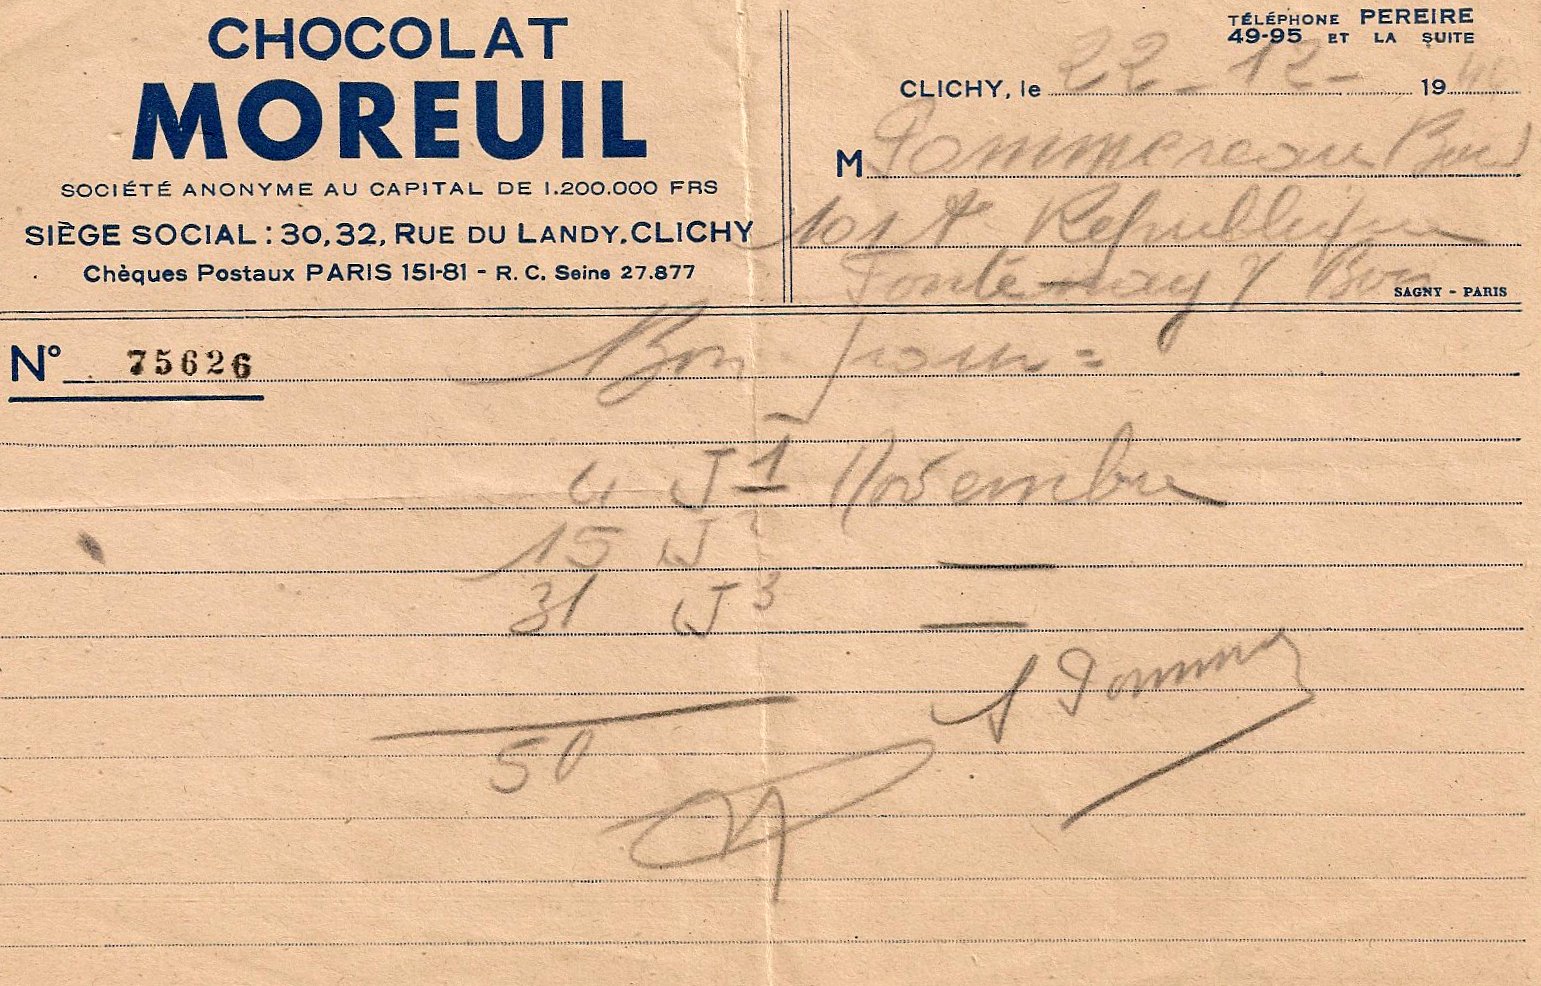 CHOCOLAT
MOREUIL
SOCIÉTÉ ANONYME AU CAPITAL DE 1.200.000 FRS
SIÈGE SOCIAL : 30,32, RUE DU LANDY. CLICHY
Chèques Postaux PARIS 151-81 - R. C. Seine 27.877
TÉLÉPHONE PEREIRE
49-95 ET LA SUITE
CLICHY, le 22-12- 19
M Pommereau
101 République
Fontenay s/ Bois
SAGNY - PARIS
N° 75626
Bon pour =
4 J1 Novembre
15 J2 —
31 J3 —
50